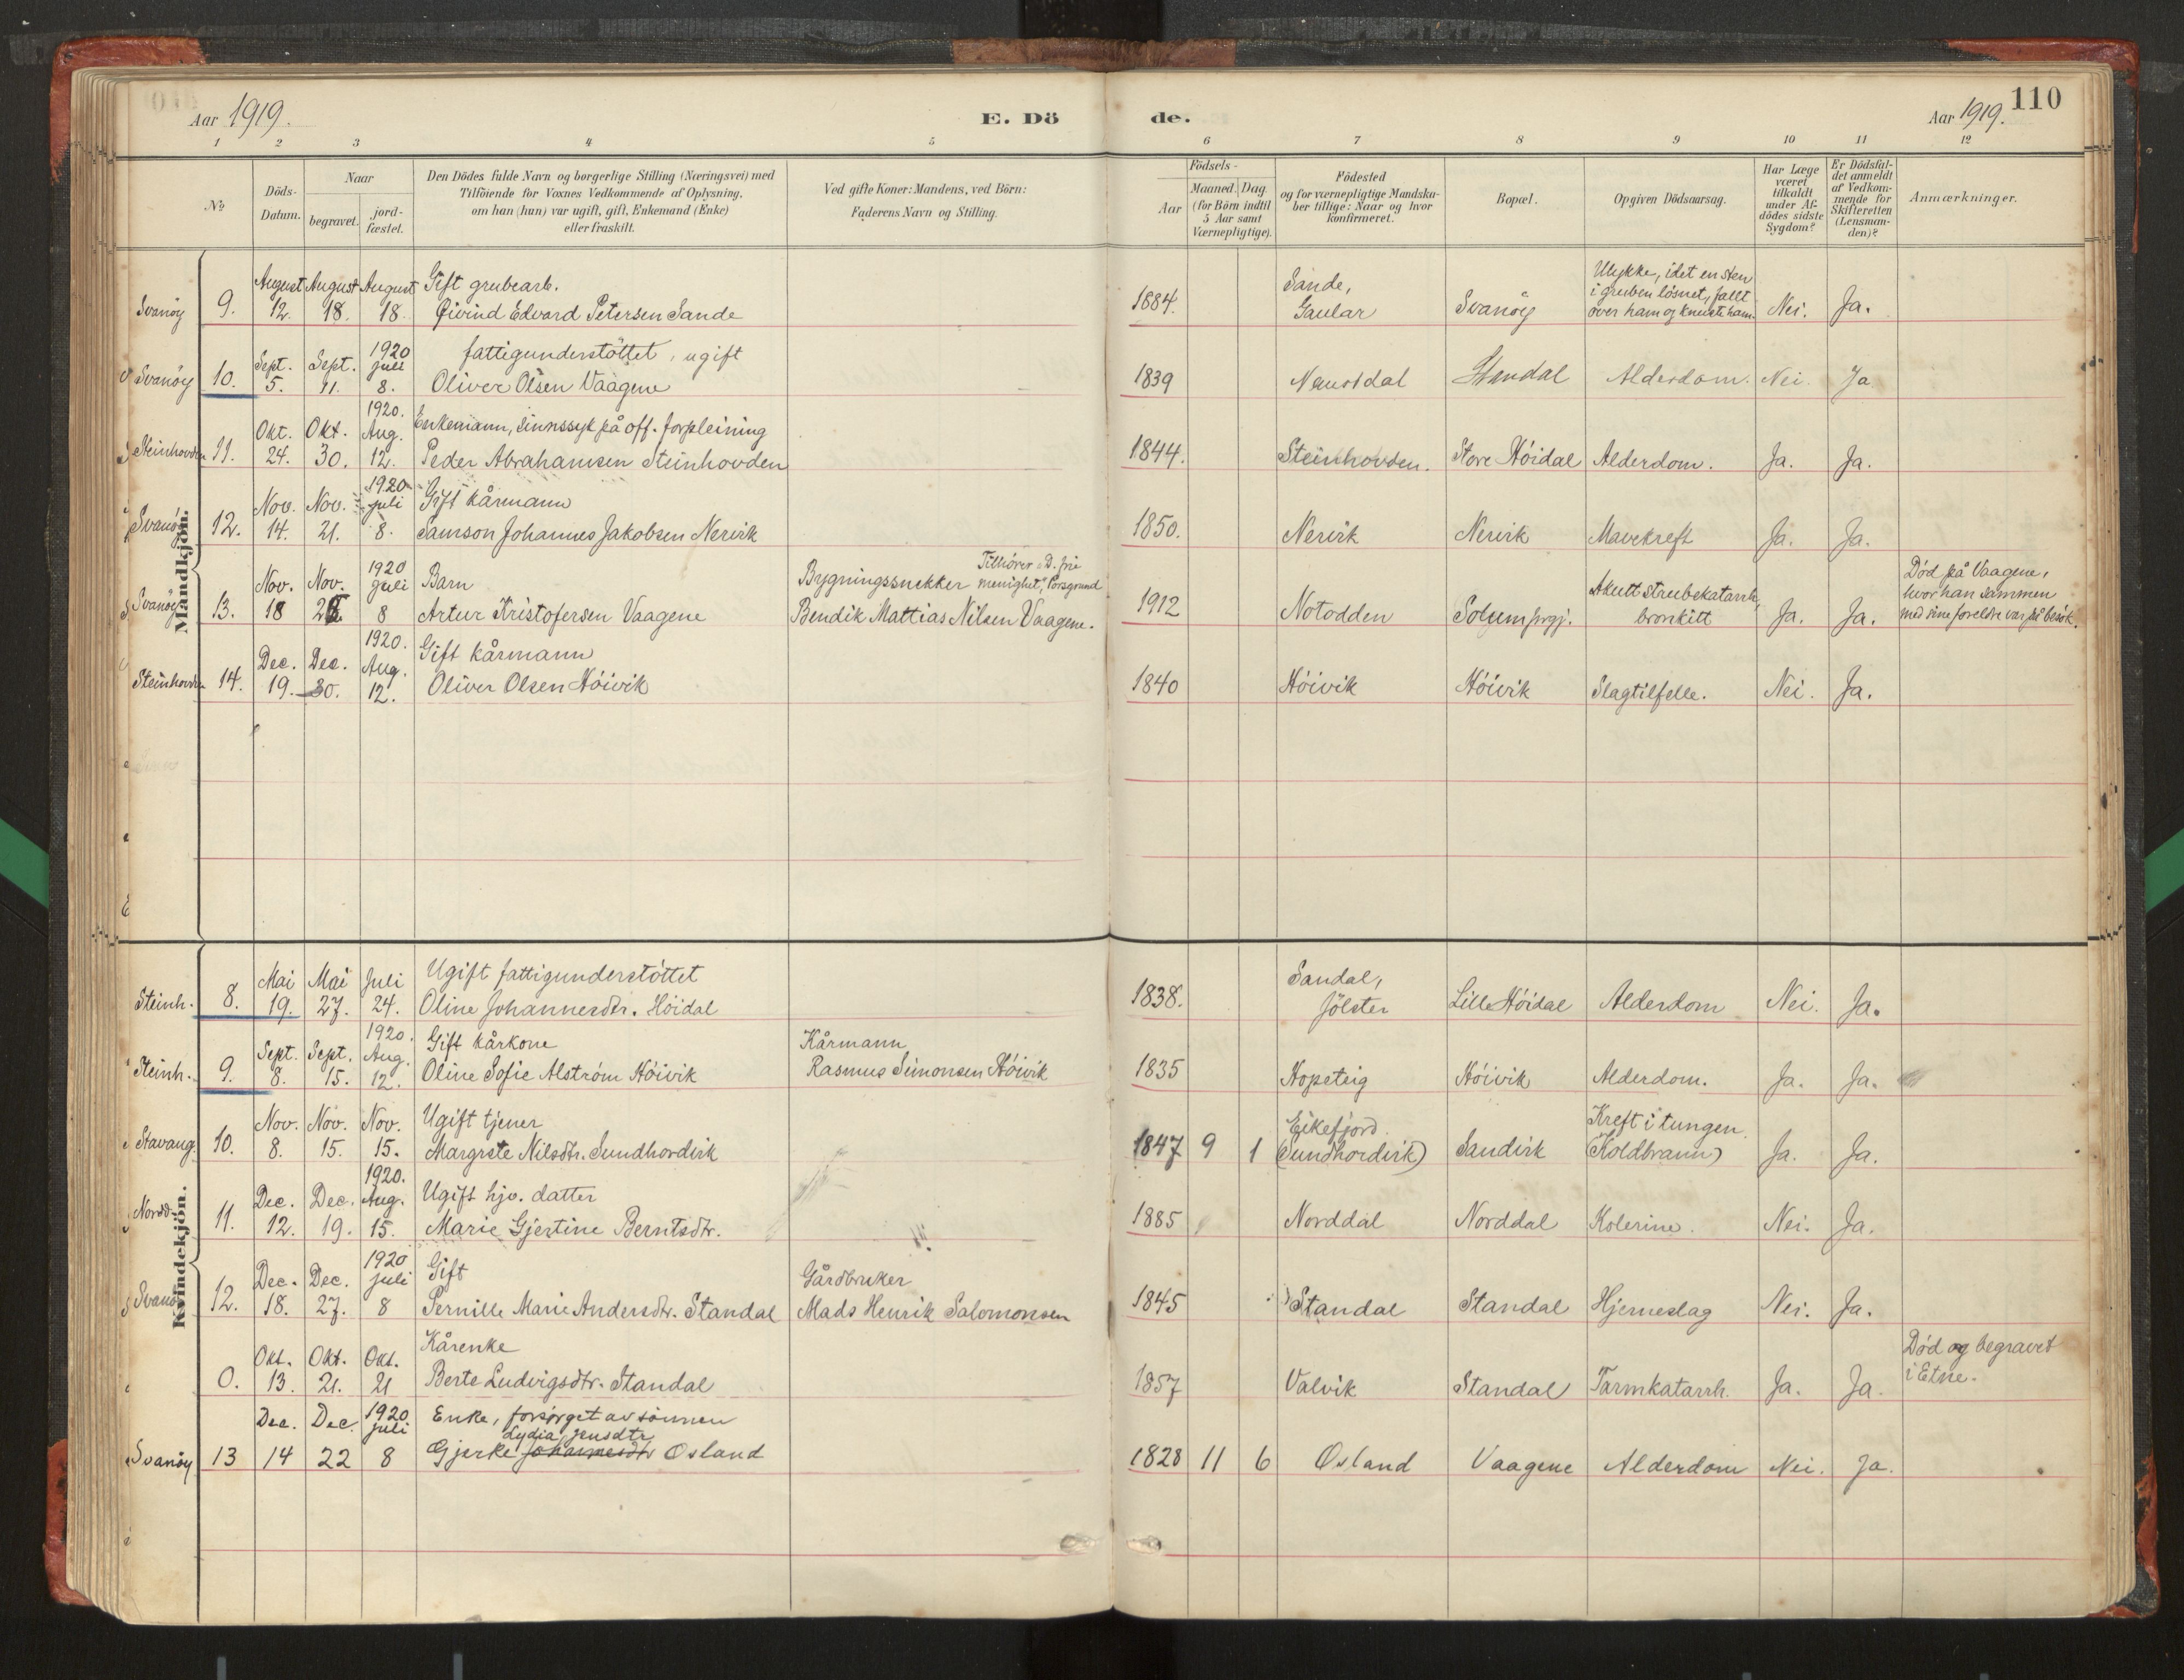 Aar 1919.
E. Dö
de.
Aar 1919.
110
1 2 3 4 5 6 7 8 9 10 11 12
No
Döds-
Datum.
Naar
begravet.
jord-
fæstet.
Den Dödes fulde Navn og borgerlige Stilling (Næringsvei) med
Tilföiende for Voxnes Vedkommende af Oplysning.
om han (hun) var ugift, gift, Enkemand (Enke)
eller fraskilt.
Ved gifte Koner: Mandens, ved Börn:
Faderens Navn og Stilling.
Födsels-
Aar
Maaned. Dag.
(for Börn indtil
5 Aar samt
Værnepligtige).
Födested
og for værnepligtige Mandska-
ber tillige: Naar og hvor
konfirmeret.
Bopæl.
Opgiven Dödsaarsag.
Har Læge
været
tilkaldt
under Af-
dödes sidste
Sygdom?
Er Dödsfal-
det anmeldt
af Vedkom-
mende for
Skifteretten
(Lensman-
den)?
Anmærkninger.
Mandkjön.
August August August Gift grubearb. Sande, Ulykke, idet en sten
i gruben løsnet, fallt
Svanöy 9. 12. 18. 18. Öivind Edvard Petersen Sande 1884. Gaular Svanöy over ham og knuste ham. Nei. Ja.
1920
Sept. Sept. juli fattigunderstöttet, ugift
Svanöy 10. 5. 11. 8. Oliver Olsen Vaagene 1839 Naustdal Standal Alderdom. Nei. Ja
1920.
Okt. Okt. Aug. Enkemann, sinnssyk på off. forpleining
Steinhovden 11. 24. 30. 12. Peder Abrahamsen Steinhovden 1844. Steinhovden. Store Höidal Alderdom. Ja. Ja.
1920
Nov. Nov. juli Gift kårmann
Svanöy 12. 14. 21. 8. Samson Johannes Jakobsen Nervik 1850. Nervik Nervik Mavekreft Ja. Ja.
1920 Tilhører "D. frie
Nov. Nov. juli Barn Bygningssnekker menighet", Porsgrund Akutt strubekatarrh, Død på Vaagene,
hvor han sammen
Svanöy 13. 18 28 8 Artur Kristofersen Vaagene Bendik Mattias Nilsen Vaagene. 1912 Notodden Solum prgj. bronkitt Ja. Ja. med sine foreldre var på besök.
1920.
Dec. Dec. Aug. Gift kårmann
Steinhovden 14. 19. 30. 12. Oliver Olsen Höivik 1840 Höivik Höivik Slagtilfelle. Nei. Ja.
Kvindekjön.
Mai Mai Juli Ugift fattigunderstöttet Sandal,
Steinh. 8. 19. 27. 24. Oline Johannesdtr. Höidal 1838. Jölster Lille Höidal Alderdom Nei. Ja.
1920.
Sept. Sept. Aug. Gift kårkone Kårmann
Steinh. 9. 8. 15. 12. Oline Sofie Alström Höivik Rasmus Simonsen Höivik 1835 Hopsteig Höivik Alderdom. Ja. Ja.
Nov. Nov. Nov. Ugift tjener Eikefjord. Kreft i tungen.
Stavang. 10. 8. 15. 15. Margrete Nilsdtr. Sundhordvik 1847 9 1 (Sundhordvik) Sandvik (Koldbrann) Ja. Ja.
1920.
Dec. Dec. Aug. Ugift hjv. datter
Nordd. 11. 12. 19. 15. Marie Gjertine Berntsdtr. 1885 Norddal Norddal Kolerine. Nei. Ja.
1920
Dec. Dec. juli Gift Gårdbruker
Svanöy 12. 18. 27. 8 Pernille Marie Andersdtr. Standal Mads Henrik Salomonsen 1845 Standal Standal Hjerneslag Nei. Ja.
Okt. Okt. Okt. Kårenke Død og begravet
0. 13. 21. 21 Berte Ludvigsdtr. Standal 1857 Valvik Standal Tarmkatarrh. Ja. Ja. i Etne.
1920
Dec. Dec. juli Enke, forsörget av sönnen
Lydia Jensdtr
Svanöy 13 14 22 8 Gjerke Johannesdtr Osland 1828 11 6 Osland Vaagene Alderdom Nei. Ja.